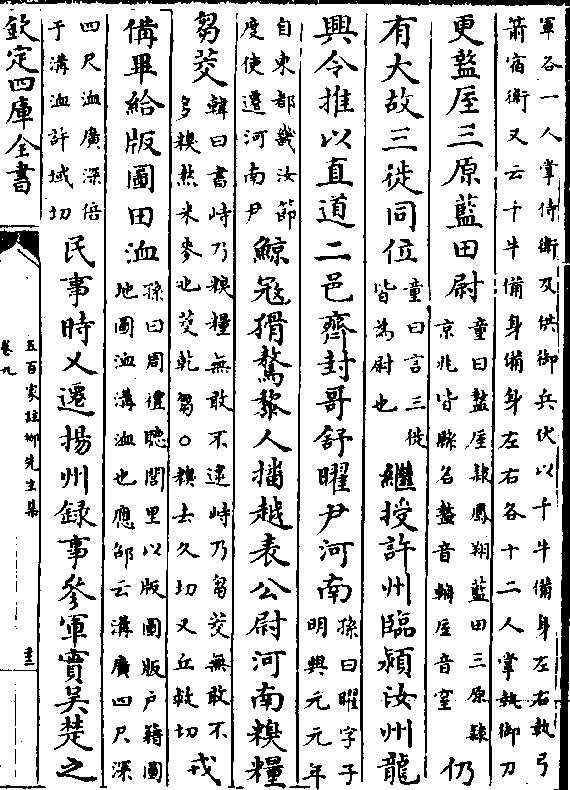 軍各一人掌侍衛及供御兵仗以千牛備身左右執弓
箭宿衛又云千牛備身備身左右各十二人掌執御刀
更盩厔三原藍田尉童曰盩厔隸鳳翔藍田三原隸
京兆皆縣名盩音輈厔音窒仍
有大故三徙同位童曰言三徙
皆為尉也繼授許州臨潁汝州龍
興令推以直道二邑齊封哥舒曜尹河南孫曰曜字子
明興元元年
自東都畿汝節
度使遷河南尹鯨寇猾驁黎人播越表公尉河南糗糧
芻茭韓曰書峙乃糗糧無敢不逮峙乃芻茭無敢不
多糗熬米麥也茭乾芻○糗去久切又丘救切戎
備畢給版圖田洫孫曰周禮聽閭里以版圖版戶籍圖
地圖洫溝洫也應邵云溝廣四尺深
四尺洫廣深倍
于溝洫許域切民事時乂遷揚州録事參軍實吳楚之
欽定四庫全書
五百家註柳先生集
卷九